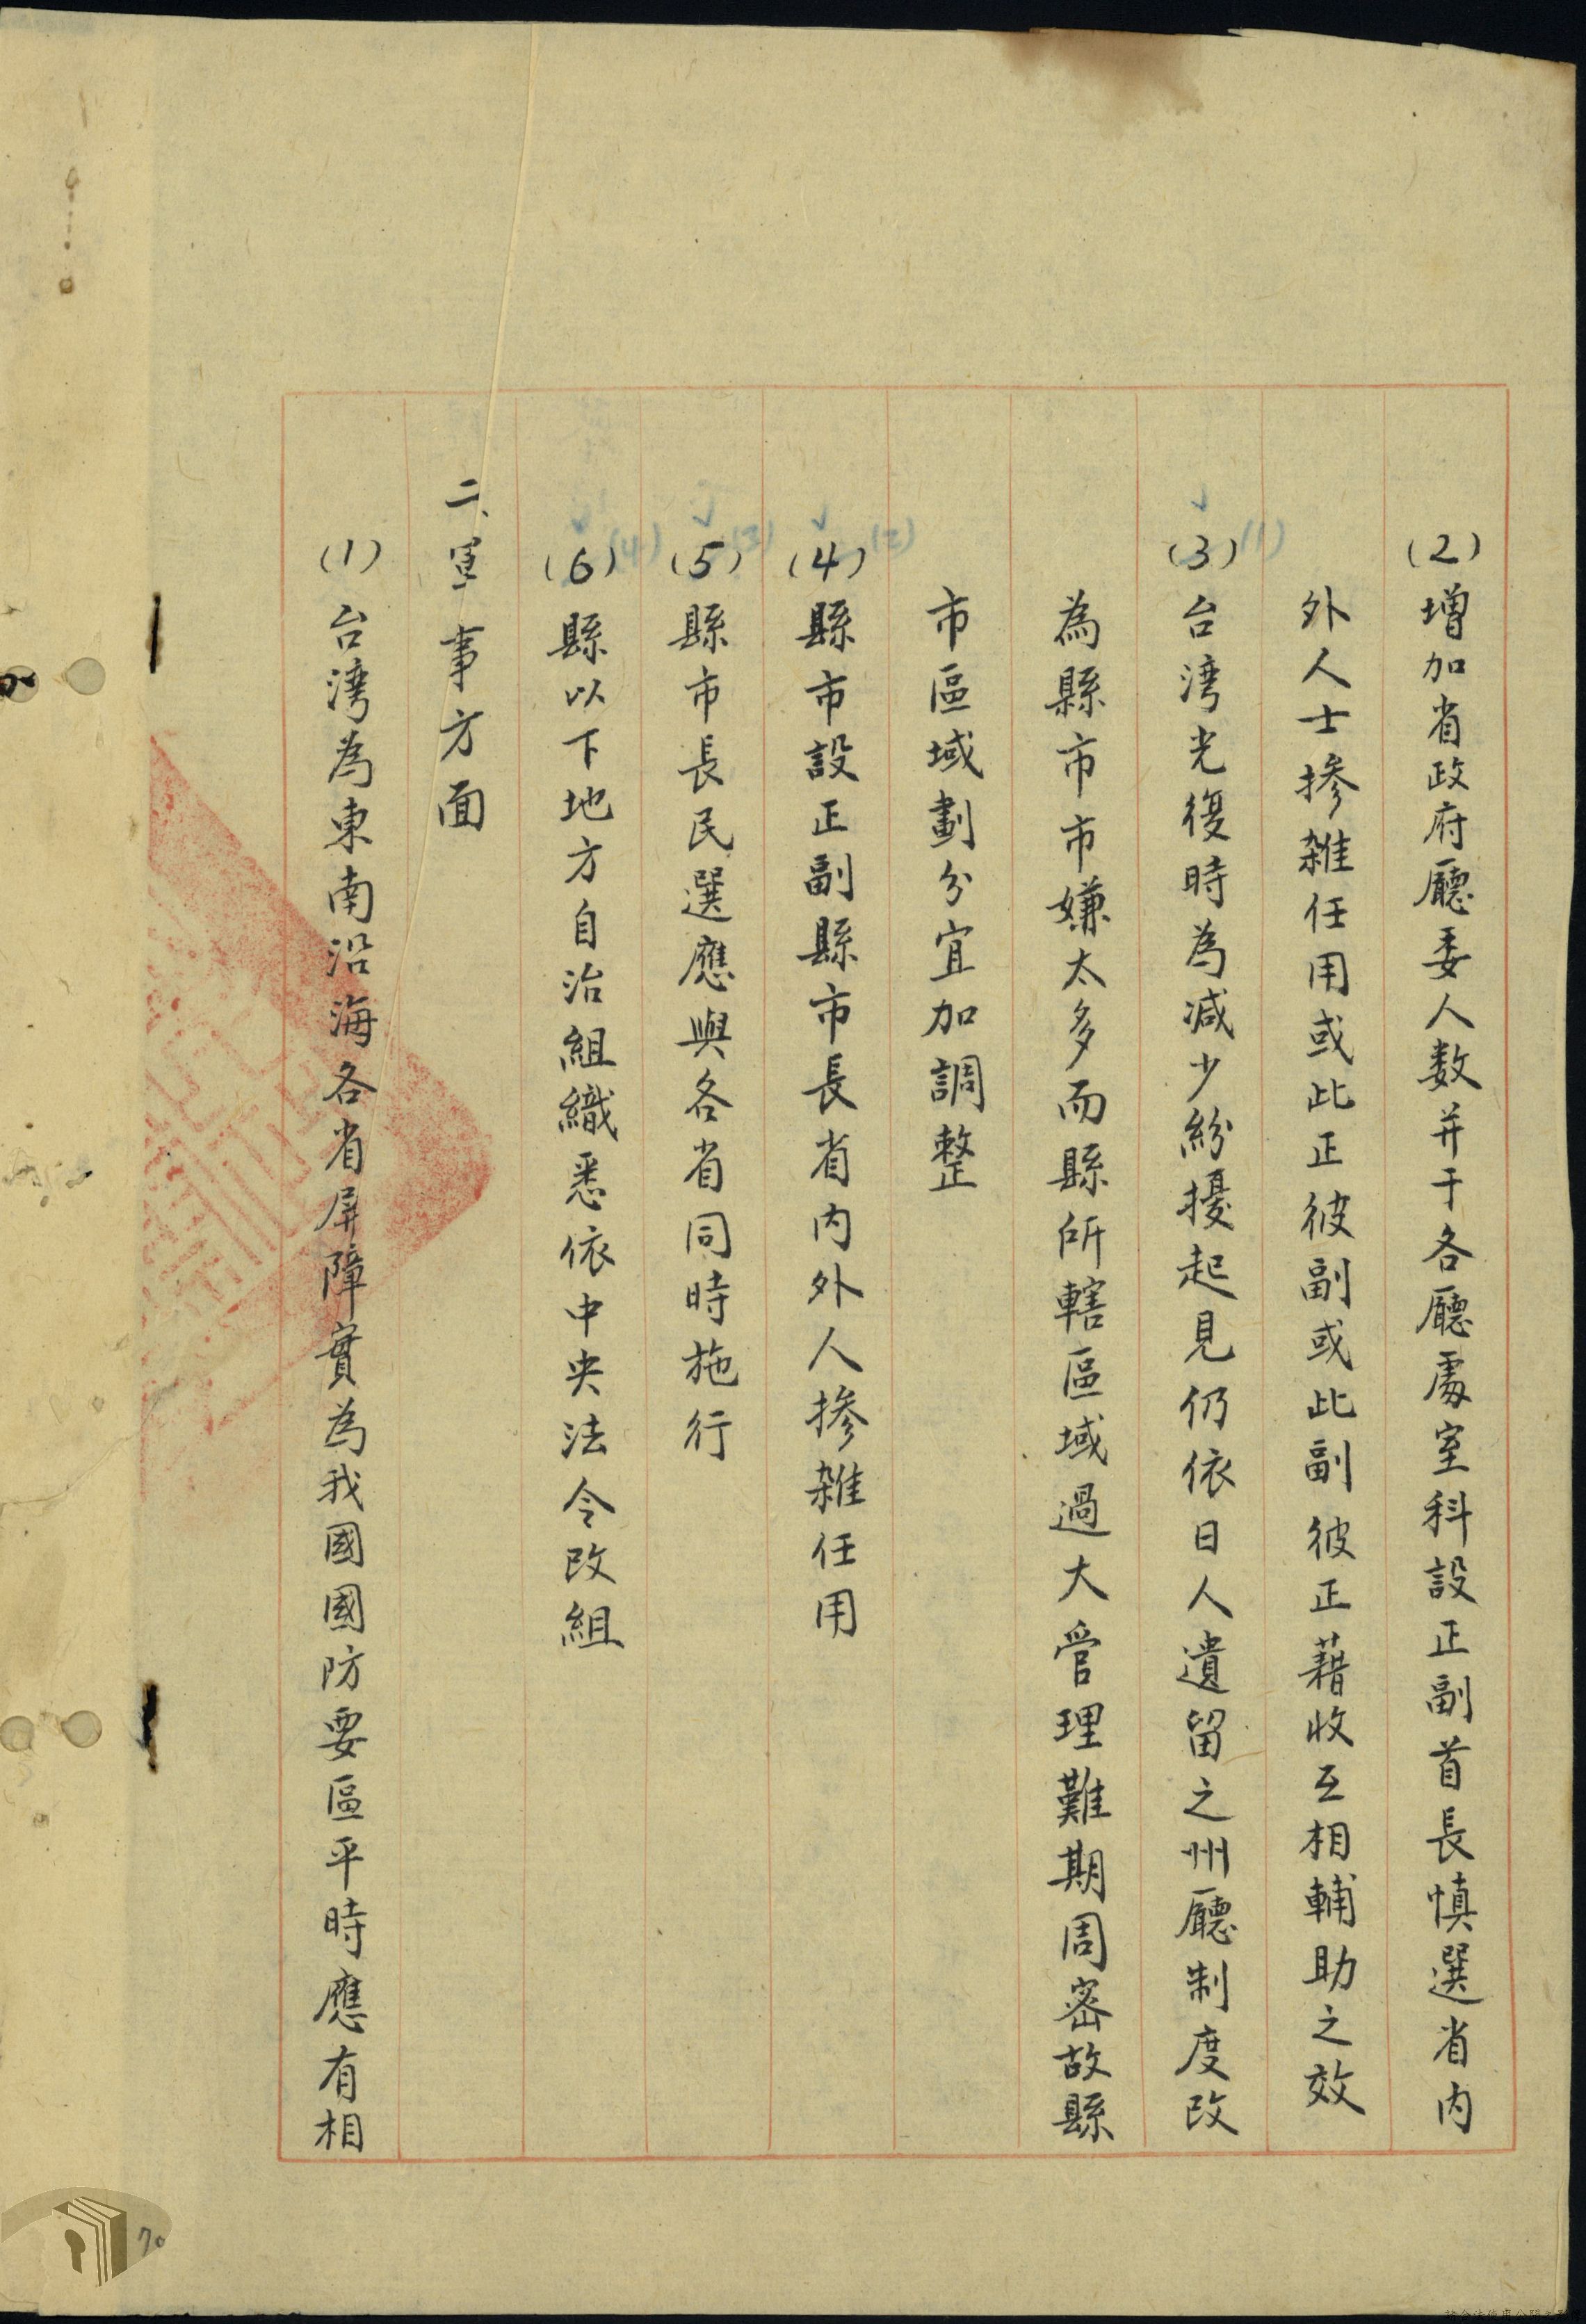 (2)增加省政府廳委人数并于各廳處室科設正副首長慎選省内
外人士掺雜任用或此正彼副或此副彼正藉收互相輔助之效
(3)台湾光復時為减少紛擾起見仍依日人遺留之州廳制度改
為縣市市嫌太多而縣所轄區域過大管理難期周密故縣
市區域劃分宜加調整
(4)縣市設正副縣市長省内外人掺雜任用
(5)縣市長民選應與各省同時施行
(6)縣以下地方自治組織悉依中央法令改組
二、軍事方面
(1)台湾為東南沿海各省屏障實為我國國防要區平時應有相
(1)
(2)
(3)
(4)
70